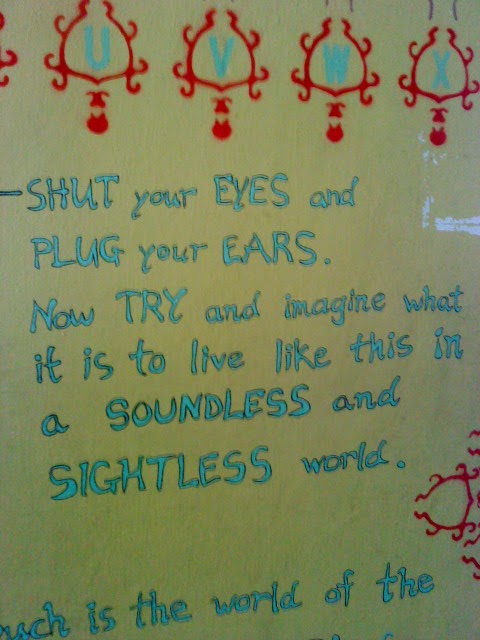 U V W X
-SHUT your EYES and
PLUG your EARS.
Now TRY and imagine what
it is to live like this in
a SOUNDLESS and
SIGHTLESS world.
is the world of the